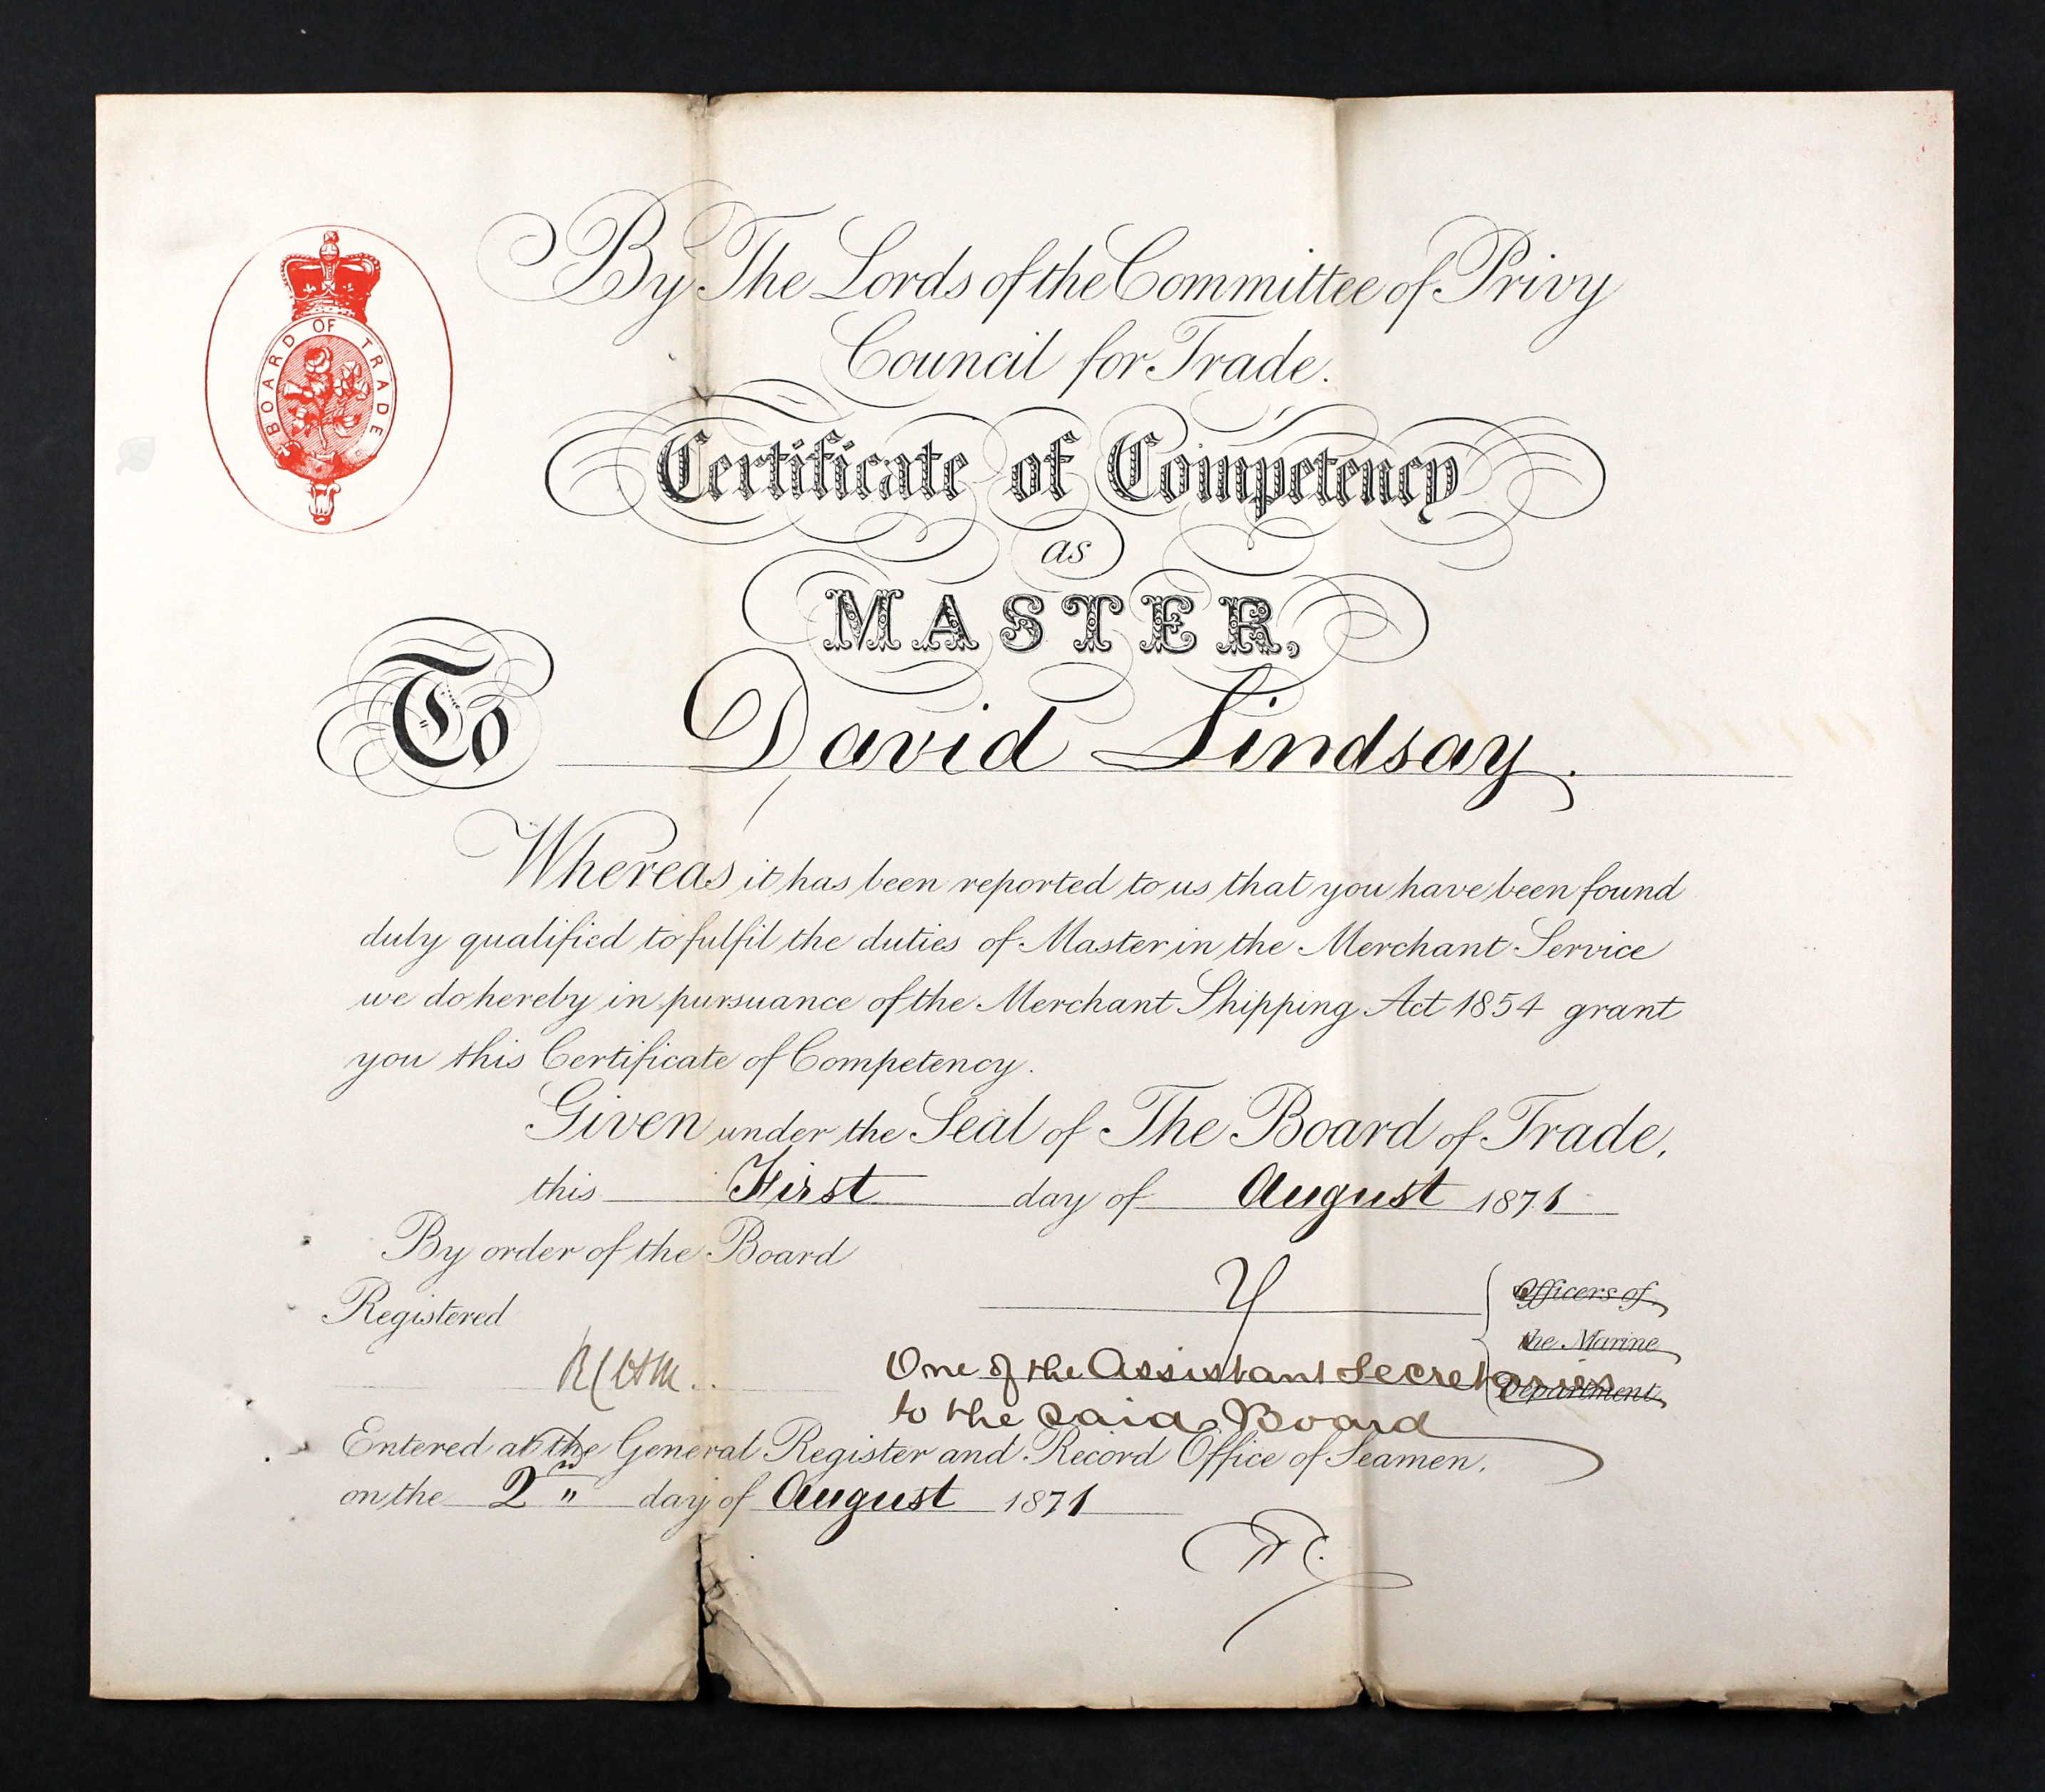 BOARD OF TRADE
By The Lords of the Committee of Privy
Council for Trade.
Certificate of Competency
as
MASTER,
To David Lindsay.
Whereas it has been reported to us that you have been found
duly qualified to fulfil the duties of Master in the Merchant Service
we do hereby in pursuance of the Merchant Shipping Act 1854 grant
you this Certificate of Competency.
Given under the Seal of The Board of Trade,
this First day of August 1871
By order of the Board
Officers of
Registered
the Marine
One of the Assistant Secretaries
Department
to the said Board
Entered at the General Register and Record Office of Seamen,
on the 2nd day of August 1871